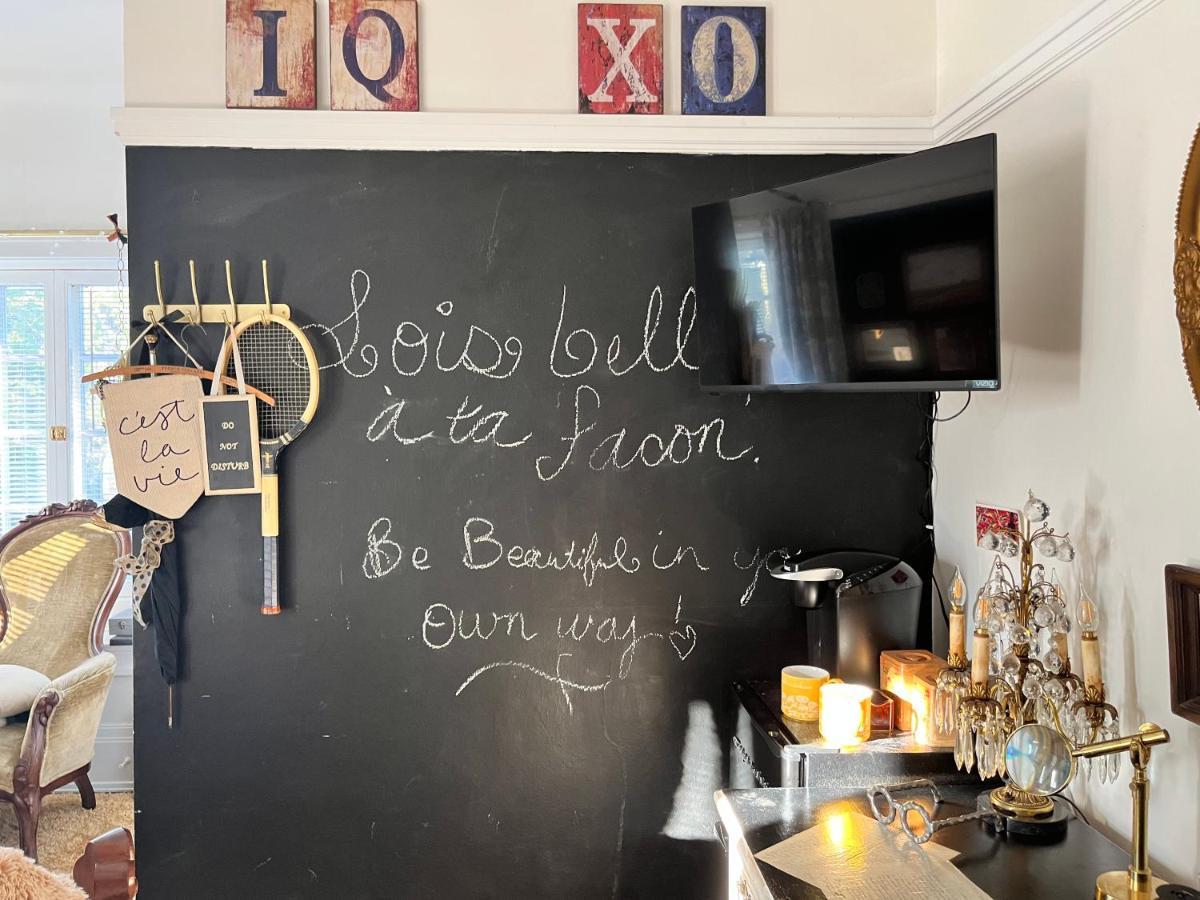 I Q X O
Sois bell
à ta facon.
c'est
la
vie
DO
NOT
DISTURB
Be Beautiful in yo
Own way!
VIZIO